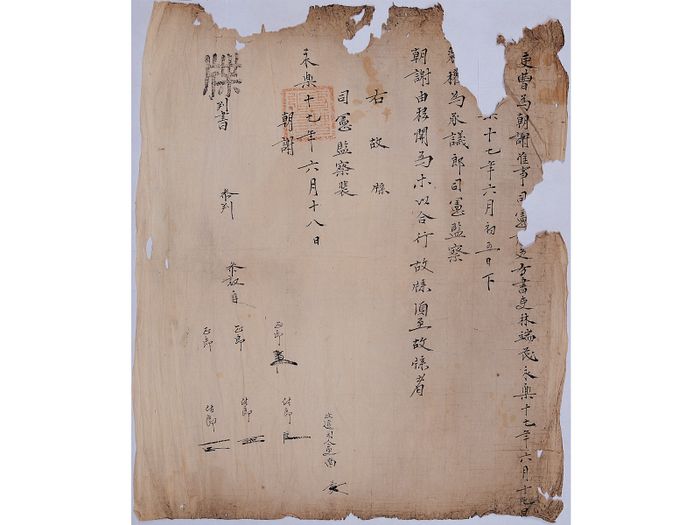 吏曹爲朝謝准事司憲 吏方書吏林瑞茂永樂十七年六月十七日
十七年六月初五日下
權爲承議郎司憲監察
朝謝由移關爲等以合行故牒須至故牒者
右故牒
司憲監察裴
朝謝
永樂十七年六月十八日
牒
判書
參判
參議
正郎
正郎
正郎
佐郎
佐郎
佐郎